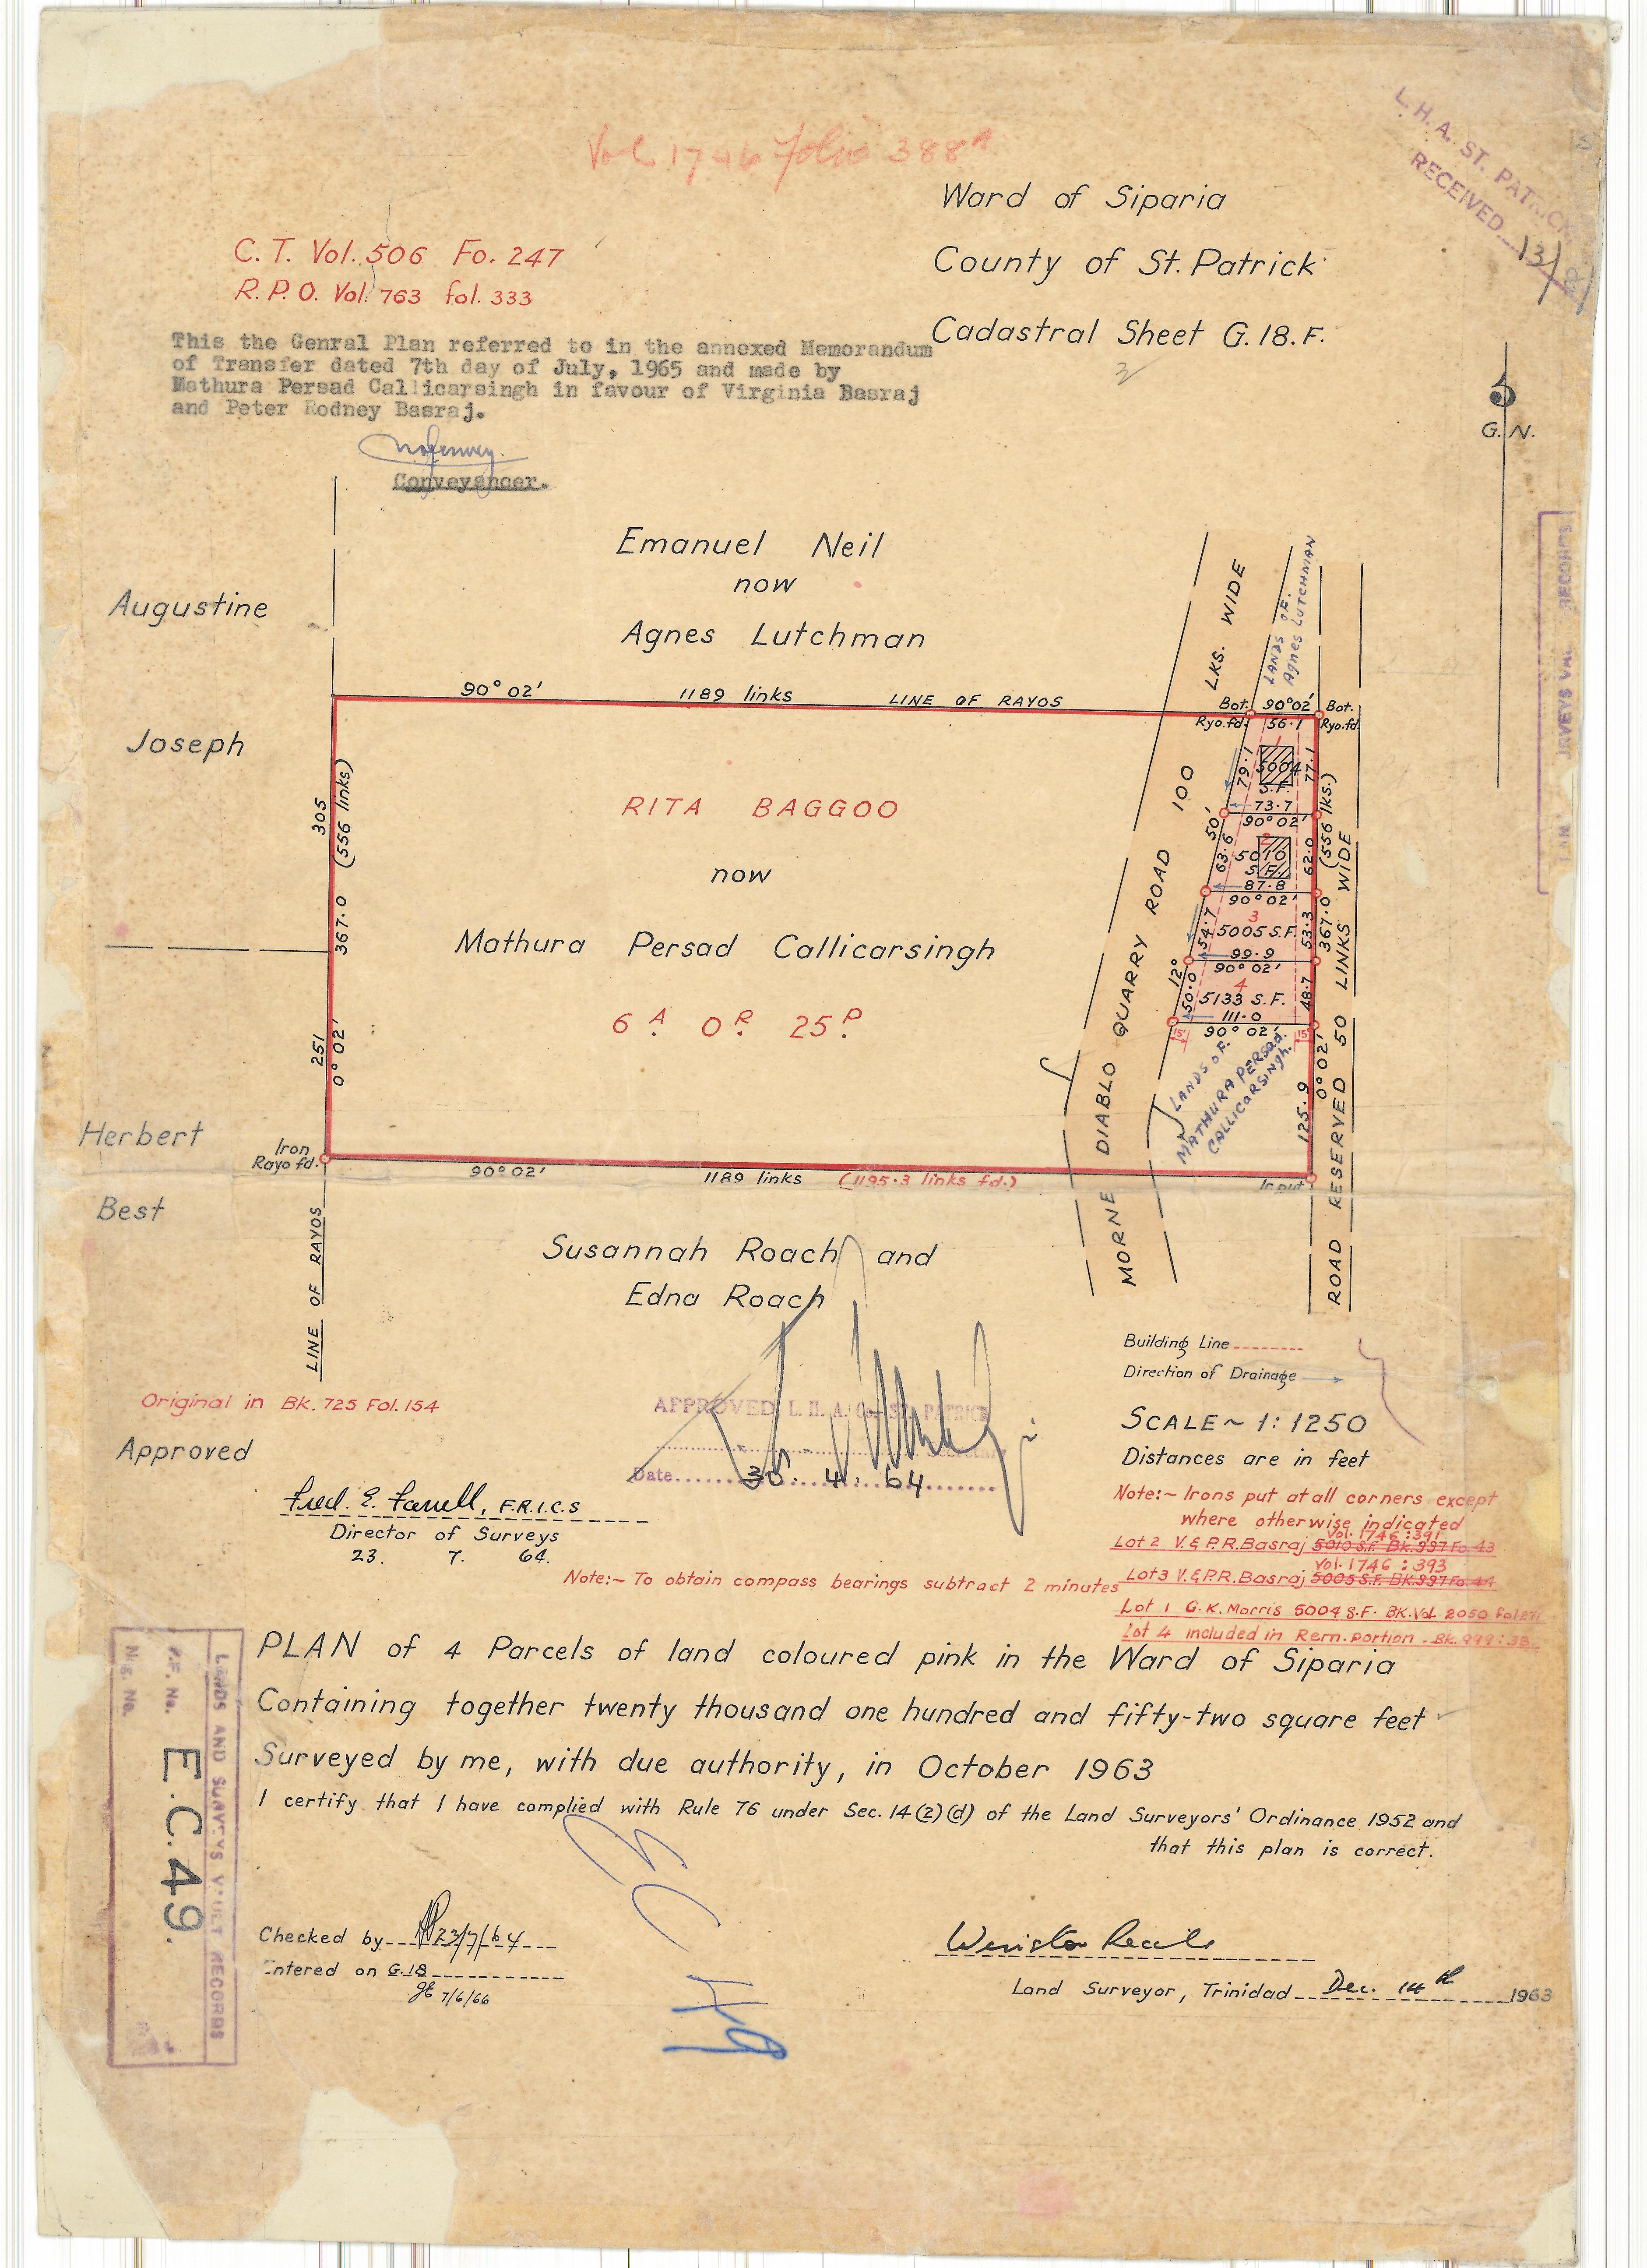 Vol. 1746 Folio 388A
L. H. A. ST. PATRICK
RECEIVED 13/
Ward of Siparia
County of St. Patrick
Cadastral Sheet G. 18. F.
C. T. Vol. 506 Fo. 247
R. P. O. Vol. 763 fol. 333
This the Genral Plan referred to in the annexed Memorandum
of Transfer dated 7th day of July, 1965 and made by
Mathura Persad Callicarsingh in favour of Virginia Basraj
and Peter Rodney Basraj.
Conveyancer.
G. N.
Emanuel Neil
now
Agnes Lutchman
Augustine
Joseph
Herbert
Best
90° 02'
1189 links
LINE OF RAYOS
LKS. WIDE
LANDS OF.
Agnes LUTCHMAN
Bot.
Ryo.fd.
90°02'
56.1
Bot.
Ryo.fd.
305
(556 links)
367.0
251
0° 02'
RITA BAGGOO
now
Mathura Persad Callicarsingh
6 A. 0 R. 25 P.
100
79.1
1
5004
S.F.
77.1
73.7
90° 02'
50'
63.6
2
5010
S.F.
62.0
87.8
90° 02'
54.7
3
5005 S.F.
53.3
99.9
90° 02'
12°
50.0
4
5133 S.F.
48.7
111.0
90° 02'
15'
15'
(556 lks.)
367.0
0° 02'
125.9
LANDS OF.
MATHURA PERSAD.
CALLICARSINGH.
MORNE DIABLO QUARRY ROAD
ROAD RESERVED 50 LINKS WIDE
Iron
Rayo fd.
90° 02'
1189 links (1195.3 links fd.)
Ir. put
LINE OF RAYOS
Susannah Roach and
Edna Roach
Building Line
Direction of Drainage
SCALE ~ 1: 1250
Distances are in feet
Original in Bk. 725 Fol. 154
Approved
APPROVED L. H. A. Co. ST. PATRICK
Date 30. 4. 64
Fred. E. Farrell, F.R.I.C.S
Director of Surveys
23. 7. 64.
Note:~ Irons put at all corners except
where otherwise indicated
Vol. 1746 : 391
Lot 2 V. & P.R. Basraj 5010 S.F. Bk. 997 Fo. 43
Vol. 1746 : 393
Lot 3 V. & P.R. Basraj 5005 S.F. Bk. 997 Fo. 44
Lot 1 G. K. Morris 5004 S.F. BK. Vol. 2050 fol. 271
Lot 4 included in Rem. portion. Bk. 999 : 38
Note:~ To obtain compass bearings subtract 2 minutes
PLAN of 4 Parcels of land coloured pink in the Ward of Siparia
Containing together twenty thousand one hundred and fifty-two square feet
Surveyed by me, with due authority, in October 1963
I certify that I have complied with Rule 76 under Sec. 14(2)(d) of the Land Surveyors' Ordinance 1952 and
that this plan is correct.
LANDS AND SURVEYS VAULT RECORDS
F. No.
N.S. No.
E.C. 49.
Checked by 23/7/64
Entered on G.18
7/6/66
EC 49
Land Surveyor, Trinidad Dec. 14th 1963